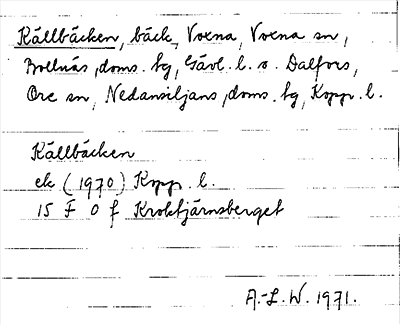 Källbäcken, bäck, Voxna, Voxna sn,
Bollnäs, doms. hg, Gävl. l. o. Dalfors,
Ore sn, Nedansiljans, doms. hg, Kopp. l.
Källbäcken
ek (1970) Kopp. l.
15 F 0 f Kroktjärnsberget
A.-L. W. 1971.